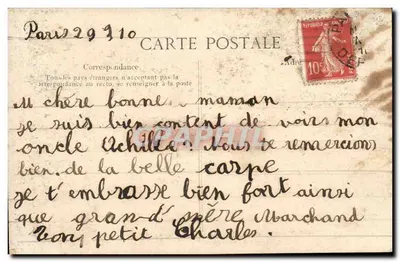 Paris 29 9 10
CARTE POSTALE
Correspondance
Tous les pays étrangers n'acceptent pas la
correspondance au recto, se renseigner à la poste
10c
M chère bonne maman
je suis bien content de voirs mon
oncle Achille. Vous te remercions
bien de la belle carpe
je t'embrasse bien fort ainsi
que grand père Marchand
Ton petit Charles.